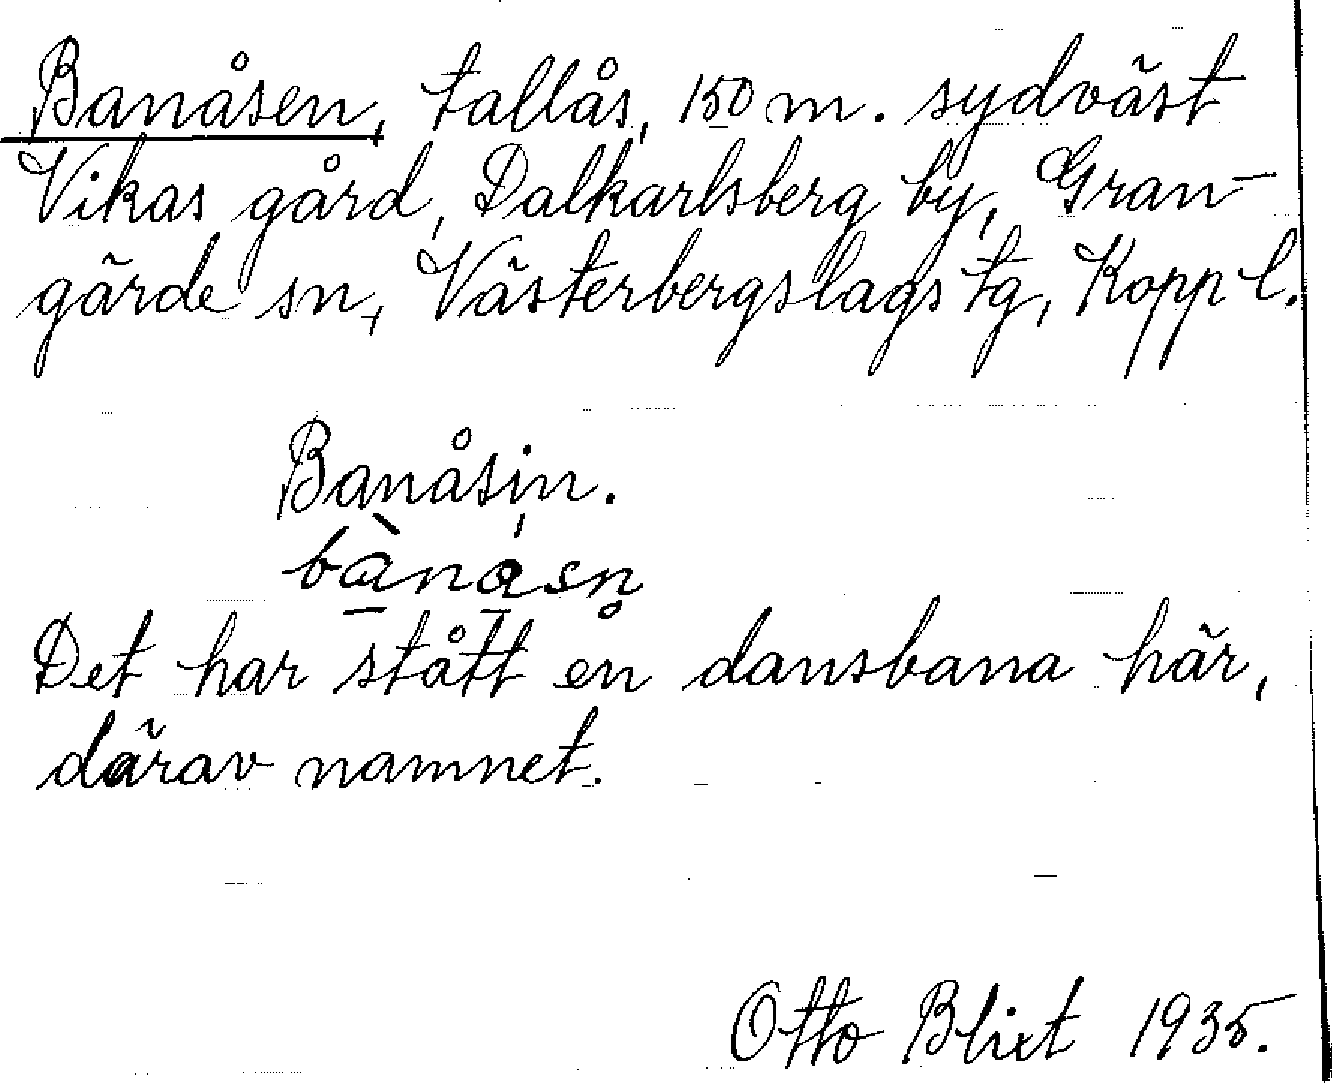 Banåsen, tallås, 150 m. sydväst
Vikas gård, Dalkarlsberg by, Gran-
gärde sn, Västerbergslags tg, Kopp l.
Banåsin.
bànåsn̥
Det har stått en dansbana här,
därav namnet.
Otto Blixt 1935.